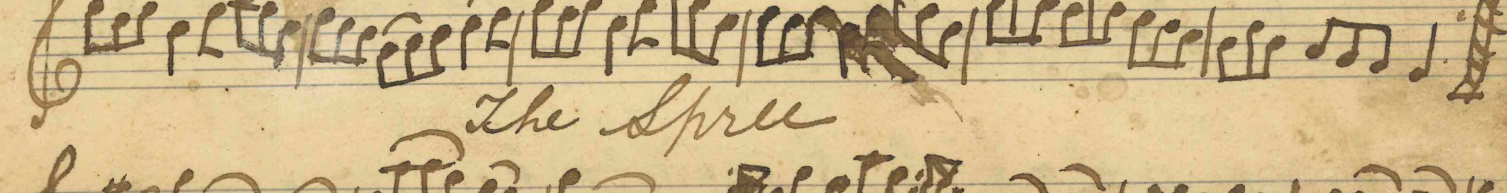 The Spree